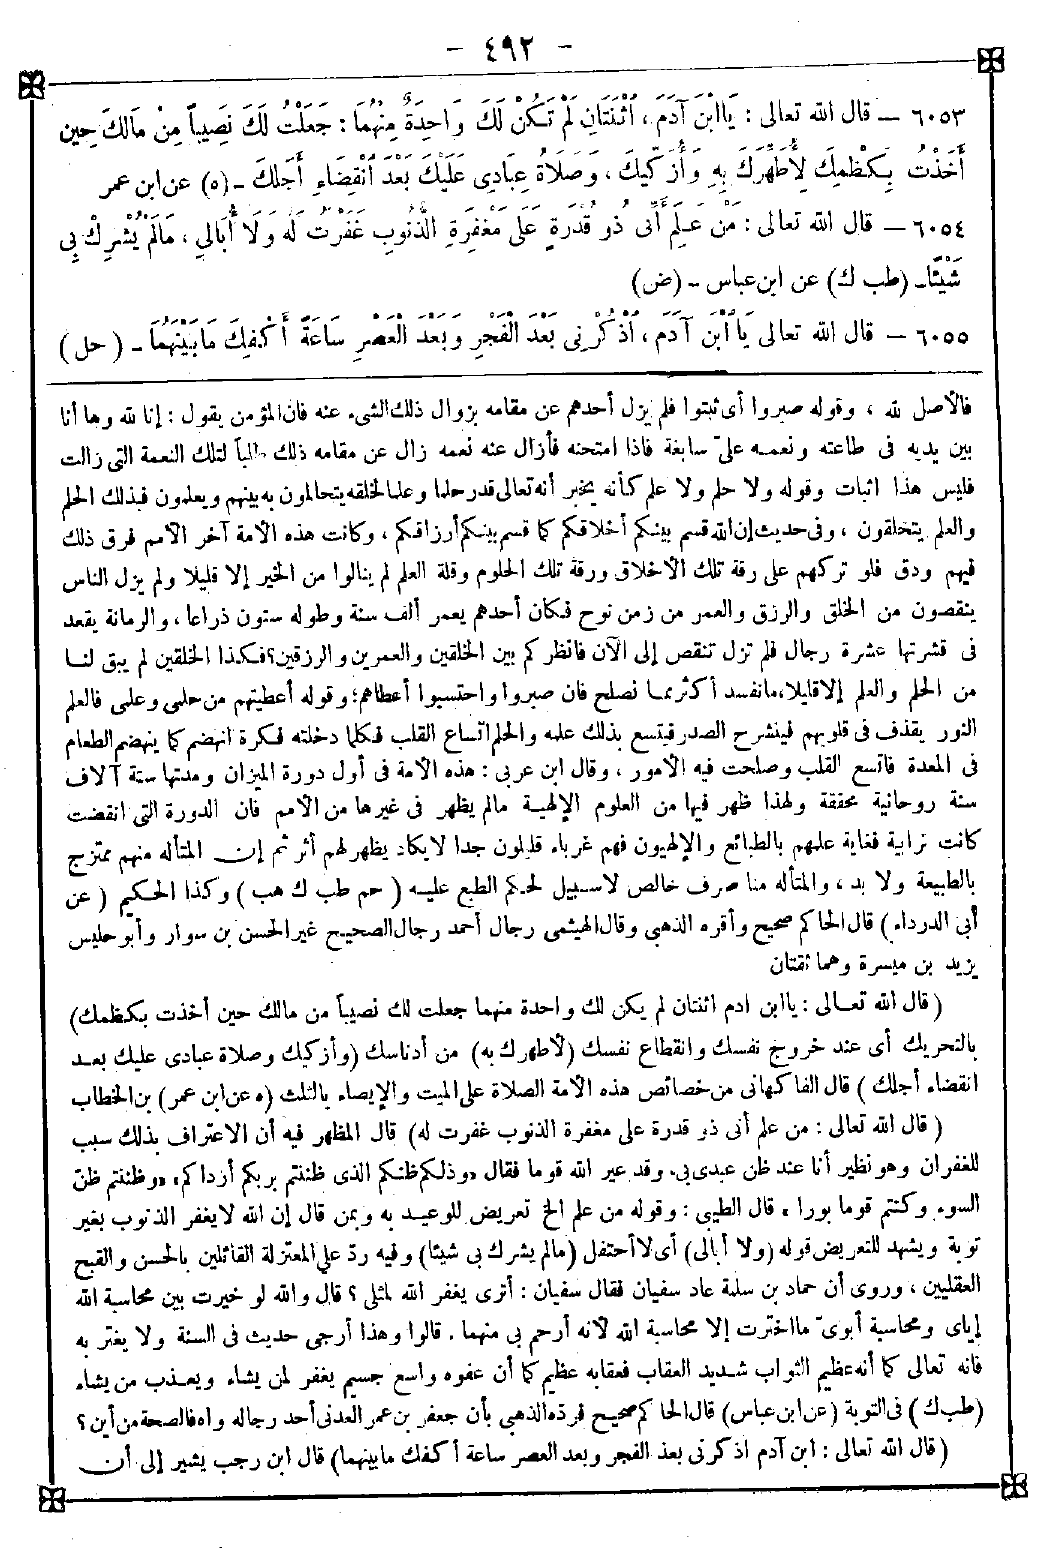 - ٤٩٢ -
٦٠٥٣ — قال الله تعالى : يَا ابْنَ آدَمَ ، اثْنَتَانِ لَمْ تَكُنْ لَكَ وَاحِدَةٌ مِنْهُمَا : جَعَلْتُ لَكَ نَصِيباً مِنْ مَالِكَ حِين
أَخَذْتُ بِكَظْمِكَ لِأُطَهِّرَكَ بِهِ وَأُزَكِّيكَ ، وَصَلَاةُ عِبَادِى عَلَيْكَ بَعْدَ انْقِضَاءِ أَجَلِكَ - (ه) عن ابن عمر
٦٠٥٤ — قال الله تعالى : مَنْ عَلِمَ أَنِّى ذُو قُدْرَةٍ عَلَى مَغْفِرَةِ الذُّنُوبِ غَفَرْتُ لَهُ وَلَا أُبَالِي ، مَالَمْ يُشْرِكْ بِى
شَيْئًا - (طب ك) عن ابن عباس - (ض)
٦٠٥٥ — قال الله تعالى يَا ابْنَ آدَمَ ، اذْكُرْنِى بَعْدَ الْفَجْرِ وَبَعْدَ الْعَصْرِ سَاعَةً أَكْفِكَ مَا بَيْنَهُمَا - (حل)
فالأصل لله ، وقوله صبروا أى ثبتوا فلم يزل أحدهم عن مقامه بزوال ذلك الشىء عنه فان المؤمن يقول : إنا لله وها أنا
بين يديه فى طاعته ونعمه علىّ سابغة فاذا امتحنه فأزال عنه نعمه زال عن مقامه ذلك طالباً لتلك النعمة التى زالت
فليس هذا اثبات وقوله ولا حلم ولا علم كأنه يخبر أنه تعالى قدر حلما وعلما لخلقه يتحالمون به بينهم ويعلمون فبذلك الحلم
والعلم يتخلقون ، وفى حديث إن الله قسم بينكم أخلاقكم كما قسم بينكم أرزاقكم ، وكانت هذه الأمة آخر الأمم فرق ذلك
فيهم ودق فلو تركهم على رقة تلك الأخلاق ورقة تلك الحلوم وقلة العلم لم ينالوا من الخير إلا قليلا ولم يزل الناس
ينقصون من الخلق والرزق والعمر من زمن نوح فكان أحدهم يعمر ألف سنة وطوله ستون ذراعا ، والرمانة يقعد
فى قشرتها عشرة رجال فلم تزل تنقص إلى الآن فانظر كم بين الخلقين والعمرين والرزقين؟ فكذا الخلقين لم يبق لنا
من الحلم والعلم إلا قليلا، ما نفسد أكثر مما نصلح فان صبروا واحتسبوا أعطاهم؛ وقوله أعطيتهم من حلمى وعلمى فالعلم
النور يقذف فى قلوبهم فينشرح الصدر فيتسع بذلك علمه والحلم اتساع القلب فكلما دخلته فكرة انهضم كما ينهضم الطعام
فى المعدة فاتسع القلب وصلحت فيه الأمور ، وقال ابن عربى : هذه الأمة فى أول دورة الميزان ومدتها ستة آلاف
سنة روحانية محققة ولهذا ظهر فيها من العلوم الإلهية مالم يظهر فى غيرها من الأمم فان الدورة التى انقضت
كانت ترابية فغاية علمهم بالطبائع والإلهيون فهم غرباء قليلون جدا لا يكاد يظهر لهم أثر ثم إن المتأله منهم ممتزج
بالطبيعة ولا بد ، والمتأله منا صرف خالص لا سبيل لحكم الطبع عليه ( حم طب ك هب ) وكذا الحكيم ( عن
أبى الدرداء ) قال الحاكم صحيح وأقره الذهبى وقال الهيثمى رجال أحمد رجال الصحيح غير الحسن بن سوار وأبو حليس
يزيد بن ميسرة وهما ثقتان
( قال الله تعالى : يا ابن ادم اثنتان لم يكن لك واحدة منهما جعلت لك نصيباً من مالك حين أخذت بكظمك)
بالتحريك أى عند خروج نفسك وانقطاع نفسك (لأطهرك به) من أدناسك (وأزكيك وصلاة عبادى عليك بعد
انقضاء أجلك ) قال الفاكهانى من خصائص هذه الأمة الصلاة على الميت والإيصاء بالثلث (ه عن ابن عمر) بن الخطاب
( قال الله تعالى : من علم أنى ذو قدرة على مغفرة الذنوب غفرت له) قال المظهر فيه أن الاعتراف بذلك سبب
للغفران وهو نظير أنا عند ظن عبدى بى، وقد عير الله قوما فقال «وذلكم ظنكم الذى ظننتم بربكم أزداكم» «وظننتم ظن
السوء وكنتم قوما بورا » قال الطيبى : وقوله من علم الخ تعريض للوعيد به وبمن قال إن الله لا يغفر الذنوب بغير
توبة ويشهد للتعريض قوله (ولا أبالى) أى لا أحتفل (مالم يشرك بى شيئا) وفيه ردّ على المعتزلة القائلين بالحسن والقبح
العقليين ، وروى أن حماد بن سلمة عاد سفيان فقال سفيان : أترى يغفر الله لمثلى ؟ قال والله لو خيرت بين محاسبة الله
إياى ومحاسبة أبوىّ ما اخترت إلا محاسبة الله لأنه أرحم بى منهما . قالوا وهذا أرجى حديث فى السنة ولا يغتر به
فانه تعالى كما أنه عظيم الثواب شديد العقاب فعقابه عظيم كما أن عفوه واسع جسيم يغفر لمن يشاء ويعذب من يشاء
(طب ك ) فى التوبة (عن ابن عباس) قال الحاكم صحيح فردّه الذهبى بأن جعفر بن عمر العدنى أحد رجاله واه فالصحة من أين ؟
( قال الله تعالى : ابن آدم اذكرنى بعد الفجر وبعد العصر ساعة أكفك ما بينهما) قال ابن رجب يشير إلى أن